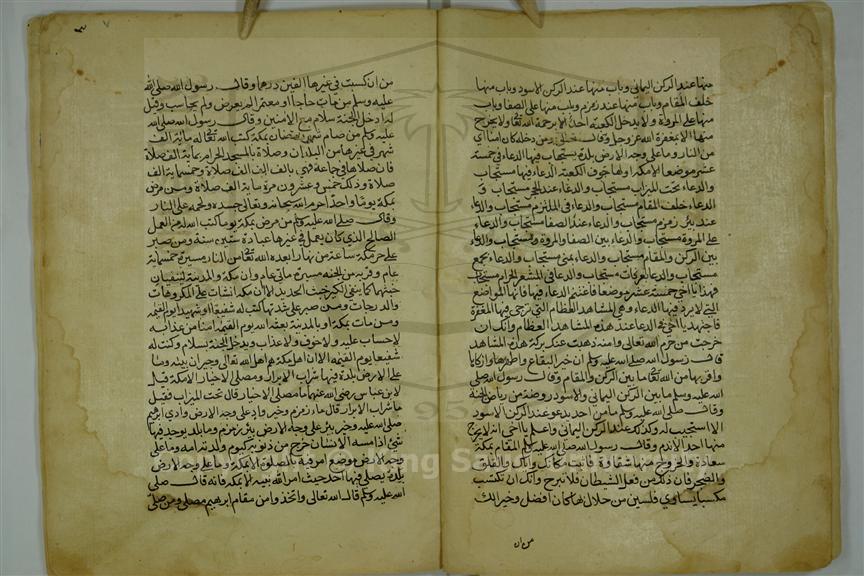 منها عند الركن اليماني وباب منها عند الركن الاسود وباب منها
خلف المقام وباب منها عند زمزم وباب منها على الصفا وباب
منها على المروة ولا يدخل الكعبة احد الا برحمة الله تعالى ولا يخرج
منها الا بمغفرة الله عز وجل وقال ومن دخله كان امنا اي
من النار وما على وجه الارض بلدة يستجاب فيها الدعاء في خمسة
عشر موضعا الا مكة اولها جوف الكعبة الدعاء فيها مستجاب
والدعاء تحت الميزاب مستجاب والدعاء عند الحجر مستجاب و
الدعاء خلف المقام مستجاب والدعاء في الملتزم مستجاب والدعاء
عند بئر زمزم مستجاب والدعاء عند الصفا مستجاب والدعاء
على المروة مستجاب والدعاء بين الصفا والمروة مستجاب والدعاء
بين الركن والمقام مستجاب والدعاء بمنى مستجاب والدعاء بجمع
مستجاب والدعاء بعرفات مستجاب والدعاء في المشعر الحرام مستجاب
فهذا يا اخي خمسة عشر موضعا فاغتنم الدعاء فيها فانها المواضع
التي لا يرد فيها الدعاء وهي المشاهد العظام التي ترجى فيها المغفرة
فاجتهد يا اخي في الدعاء عند هذه المشاهد العظام وانك ان
خرجت من حرم الله تعالى وامنه ذهبت عنك بركة هذه المشاهد
قال رسول الله صلى الله عليه وسلم ان خير البقاع واطهرها وازكاها
واقربها من الله تعالى ما بين الركن والمقام وقال رسول الله صلى
الله عليه وسلم ما بين الركن اليماني والاسود روضة من رياض الجنة
وقال صلى الله عليه وسلم ما من احد يدعو عند الركن الاسود
الا استجيب له وكذلك عند الركن اليماني واعلم يا اخي انه لا يخرج
منها احد الا ندم وقال رسول الله صلى الله عليه وسلم المقام بمكة
سعادة والخروج منها شقاوة فاثبت مكانك واياك والقلق
والضجر فان ذلك من فعل الشيطان فلا تبرح وانك ان تكتسب
مكسبا يساوي فلسين من حلال ها كان افضل وخير الك
من ان
من ان كسبت في غيرها الفين درهما وقال رسول الله صلى الله
عليه وسلم من مات حاجا او معتمرا لم يعرض ولم يحاسب وقيل
له ادخل الجنة بسلام مع الامنين وقال رسول الله صلى الله
عليه وسلم من صام شهر رمضان بمكة كتب الله تعالى له مائة الف
شهر في غيرها من البلدان وصلاة بالمسجد الحرام بمائة الف صلاة
فان صلاها في جماعة فهي بالف الف صلاة وخمسمائة الف
صلاة وذلك خمس وعشرون مرة مائة الف صلاة ومن مرض
بمكة يوما واحدا حرم الله سبحانه وتعالى جسده ولحمه على النار
وقال صلى الله عليه وسلم من مرض بمكة يوما كتب الله له من العمل
الصالح الذي كان يعمل في غيرها عبادة ستين سنة ومن صبر
على حر مكة ساعة من نهار ابعده الله تعالى من النار مسيرة خمسماية
عام وقربه من الجنة مسيرة مائتي عام وان مكة والمدينة لينفيان
خبثهما كما ينفي الكير خبث الحديد الا ان مكة انشات على المكروهات
والدرجات ومن صبر على شدتها كنت له شفيعا او شهيدا يوم القيمة
ومن مات بمكة او بالمدينة بعثه الله يوم القيمة امنا من عذابه
لا حساب عليه ولا خوف ولا عذاب ويدخل الجنة بسلام وكنت له
شفيعا يوم القيمة الا ان اهل مكة هم اهل الله تعالى وجيران بيته وما
على الارض بلدة فيها شراب الابرار ومصلى الاخيار الا مكة قيل
لابن عباس رضي الله عنهما ما مصلى الاخيار قال تحت الميزاب فقيل
ما شراب الابرار قال ماء زمزم وخير واد على وجه الارض وادي ابراهيم
صلى الله عليه وسلم وخير بئر على وجه الارض بئر زمزم وما بلد يوجد فيها
شئ اذا مسه الانسان خرج من ذنوبه كيوم ولدته امه وما على
وجه الارض موضع امر فيه بالصلوة الا مكة وما على وجه الارض
بلدة يصلي فيها احد حيث امر الله نبيه الا بمكة فانه قال صلى
الله عليه وسلم قال الله تعالى واتخذوا من مقام ابراهيم مصلى ومن صلى